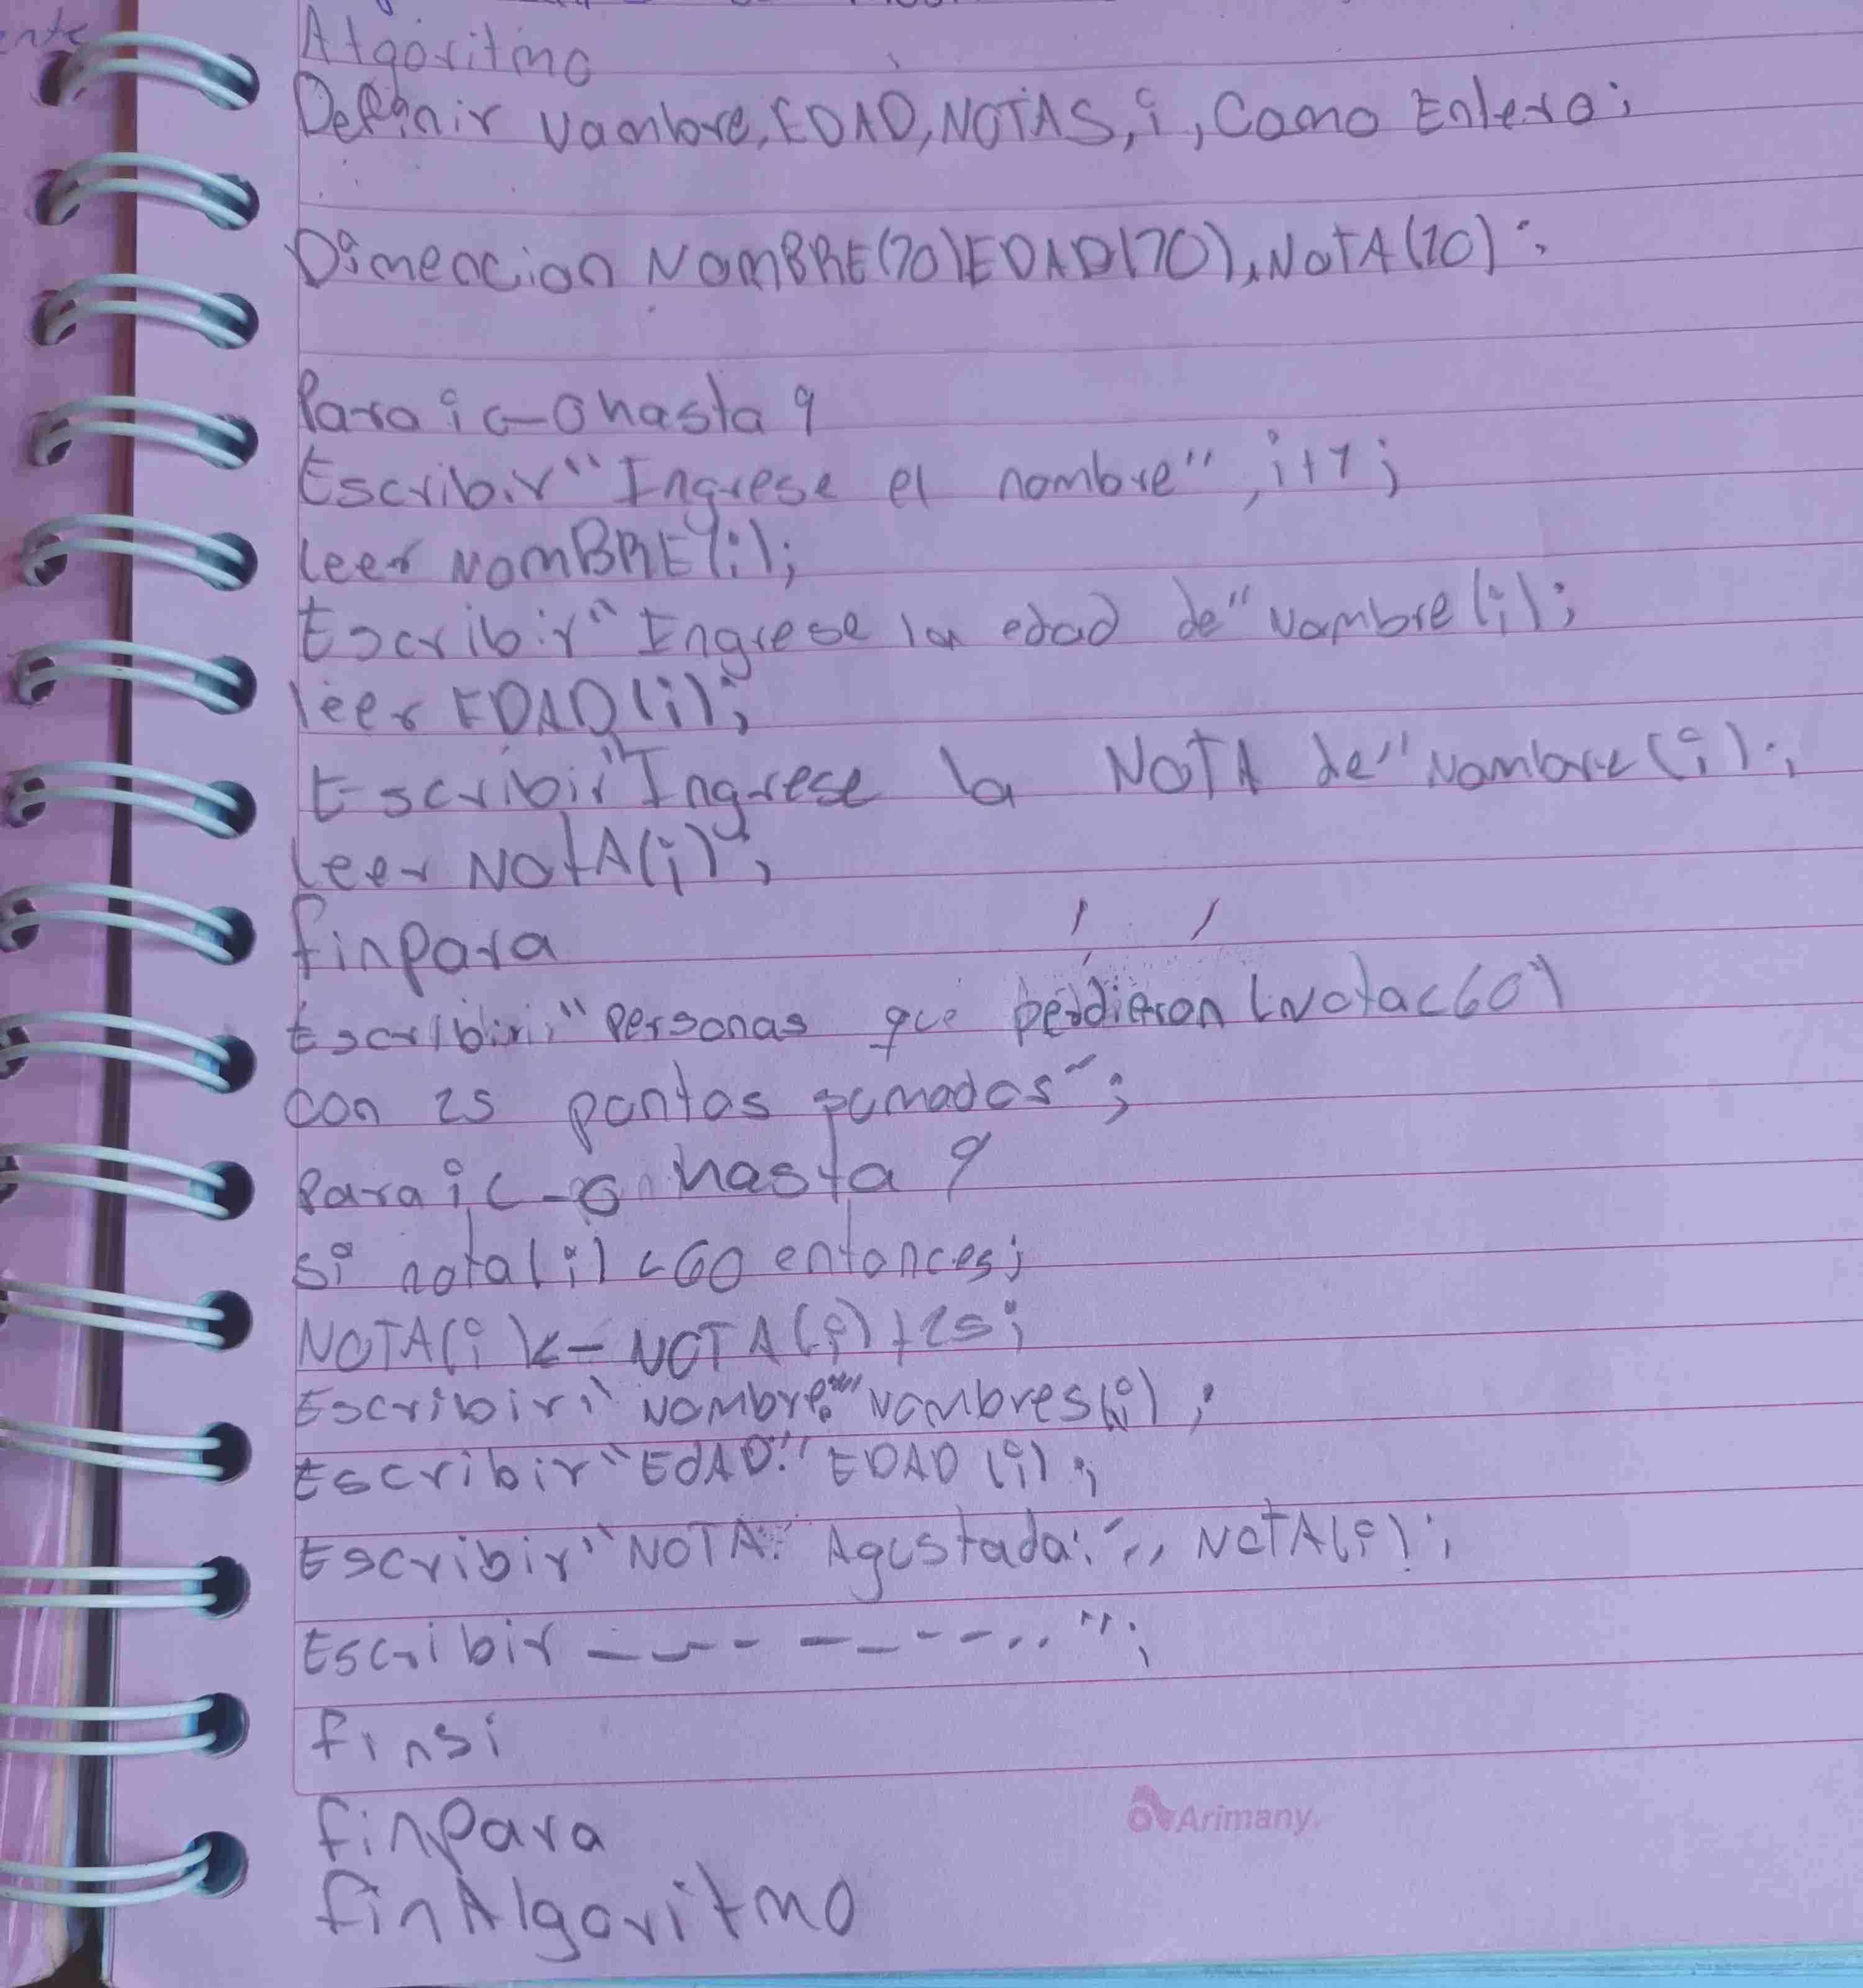 ente
Algoritmo
Definir Nombre, EDAD, NOTAS, i, Como Entero;
Dimencion NOMBRE(10)EDAD(10), NOTA(10);
Para i<-0 hasta 9
Escribir "Ingrese el nombre", i+1;
leer NOMBRE(i);
Escribir "Ingrese la edad de" Nombre(i);
leer EDAD(i);
Escribir "Ingrese la NOTA de" Nombre(i);
leer NOTA(i);
finPara
Escribir "Personas que perdieron (Nota<60)
con 25 puntos sumados";
Para i<-0 hasta 9
si nota(i) <60 entonces;
NOTA(i)<- NOTA(i)+25;
Escribir "Nombre:" Nombres(i);
Escribir "EdAD:" EDAD(i);
Escribir "NOTA: Agustada:",, NOTA(i);
Escribir ----------..";
finsi
finPara
finAlgoritmo
Arimany.